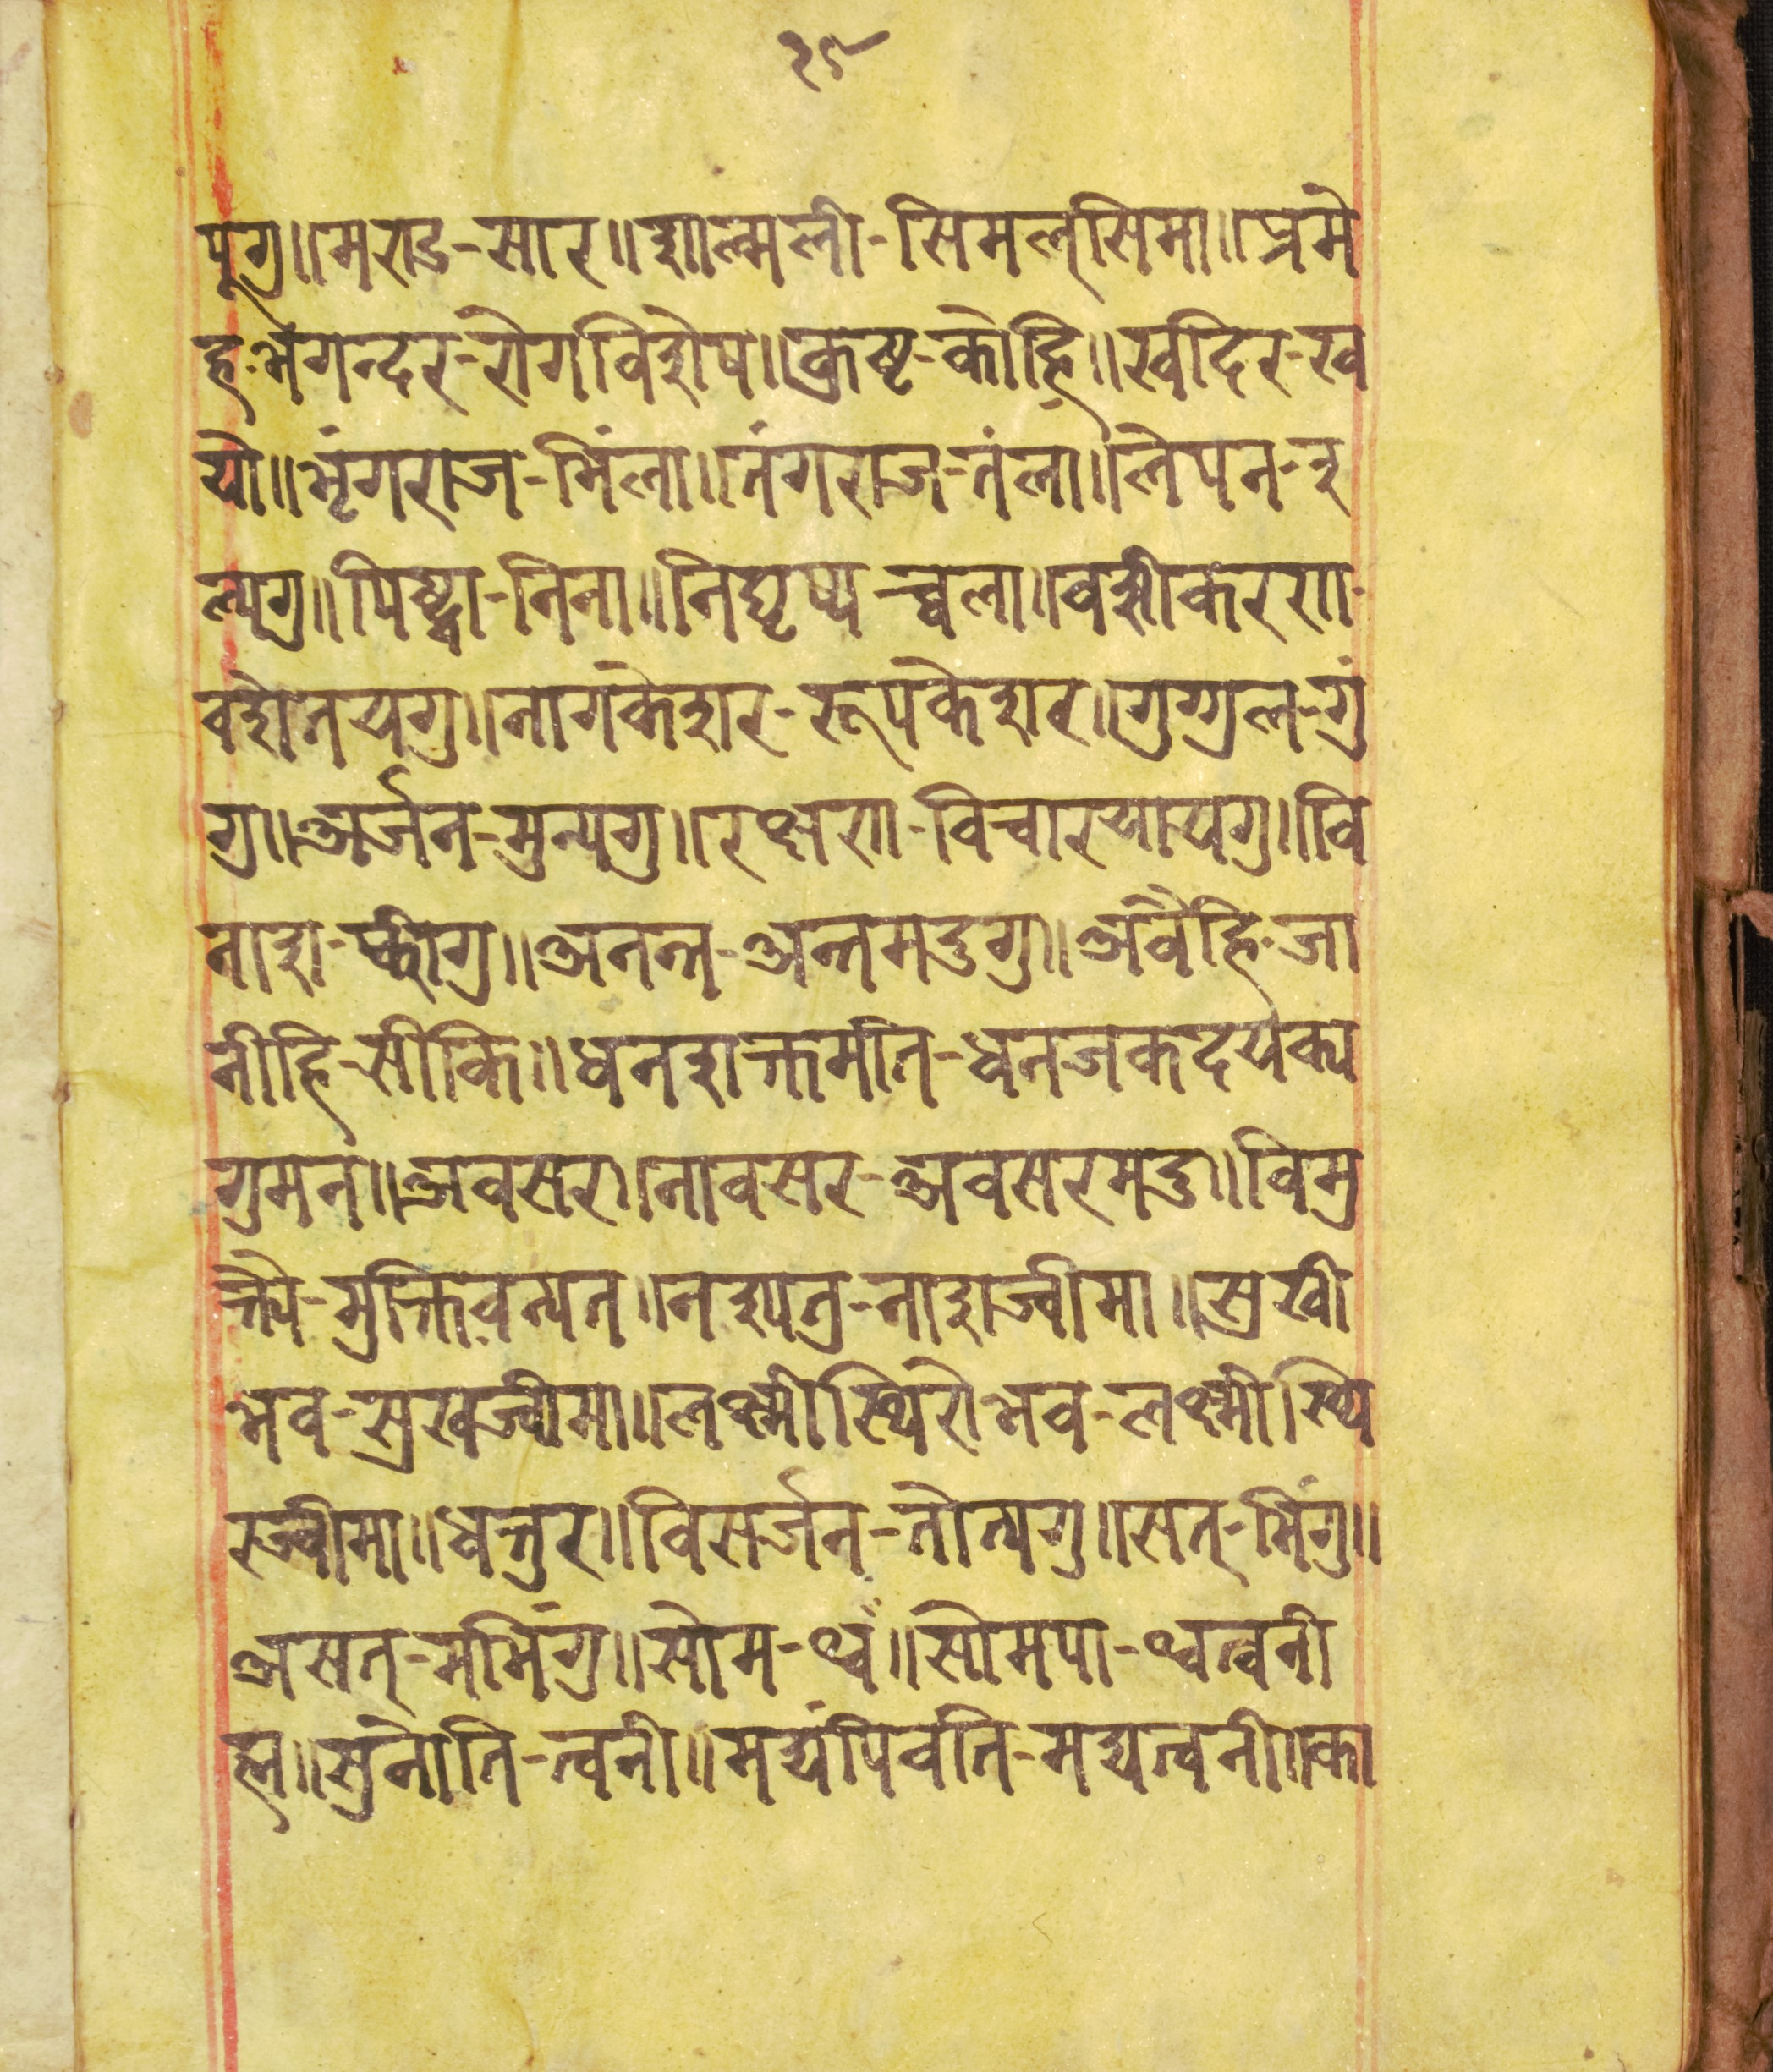 २९
पूगु॥मराड-सार॥शाल्मली-सिमल्सिमा॥प्रमे
ह-भगन्दर-रोगविशेष॥कुष्ट-कोह्रि॥खदिर-ख
यो॥भृंगराज-भिंला॥तंगराज-तंला॥लेपन-इ
ल्यगु॥पिष्ट्वा-निना॥निघृष्य-च्वला॥वशीकरण-
वशेतयगु॥नागकेशर-रूपकेशर॥गुग्गुल-गुं
गु॥अर्जन-मुन्यगु॥रक्षण-विचारयायगु॥वि
नाश-फ्वीगु॥अनन्त-अन्तमदुगु॥अवैहि-जा
नीहि-सीकि॥धनशक्तमति-धनजकदयेक्य
गुमनं॥अवसर॥नावसर-अवसरमदु॥विमु
क्त्यै-मुक्तिवन्यत॥नश्यतु-नाशज्वीमा॥सुखी
भव-सुखज्वीमा॥लक्ष्मीस्थिरोभव-लक्ष्मीस्थि
रज्वीमा॥धत्तुर॥विसर्जन-तोत्यगु॥सत्-भिंगु॥
असत्-मभिंगु॥सोम-थ्वँ॥सोमपा-थ्वत्वनी
ह्म॥सुनोति-त्वनी॥मद्यंपिवति-मद्यत्वनी॥का